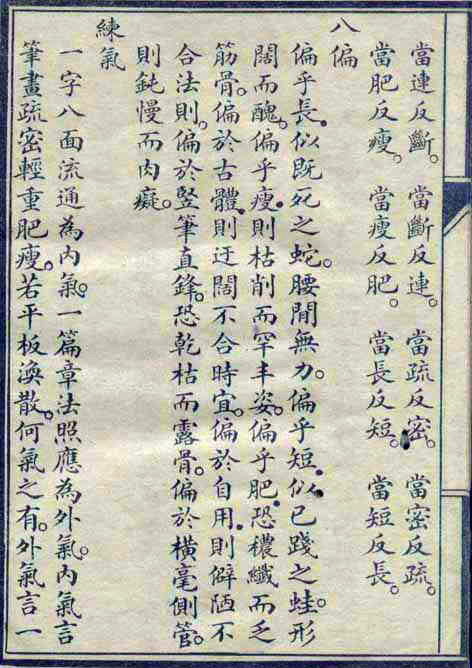 當連反斷。當斷反連。當疏反密。當密反疏。
當肥反瘦。當瘦反肥。當長反短。當短反長。
八偏
偏乎長。似既死之蛇。腰間無力。偏乎短。似已踐之蛙。形
闊而醜。偏乎瘦。則枯削而罕丰姿。偏乎肥。恐穠纖而乏
筋骨。偏於古體。則迂闊不合時宜。偏於自用。則僻陋不
合法則。偏於竪筆直鋒。恐乾枯而露骨。偏於橫毫側管。
則鈍慢而肉癡。
練氣
一字八面流通為內氣。一篇章法照應為外氣。內氣言
筆畫疏密輕重肥瘦。若平板渙散。何氣之有。外氣言一